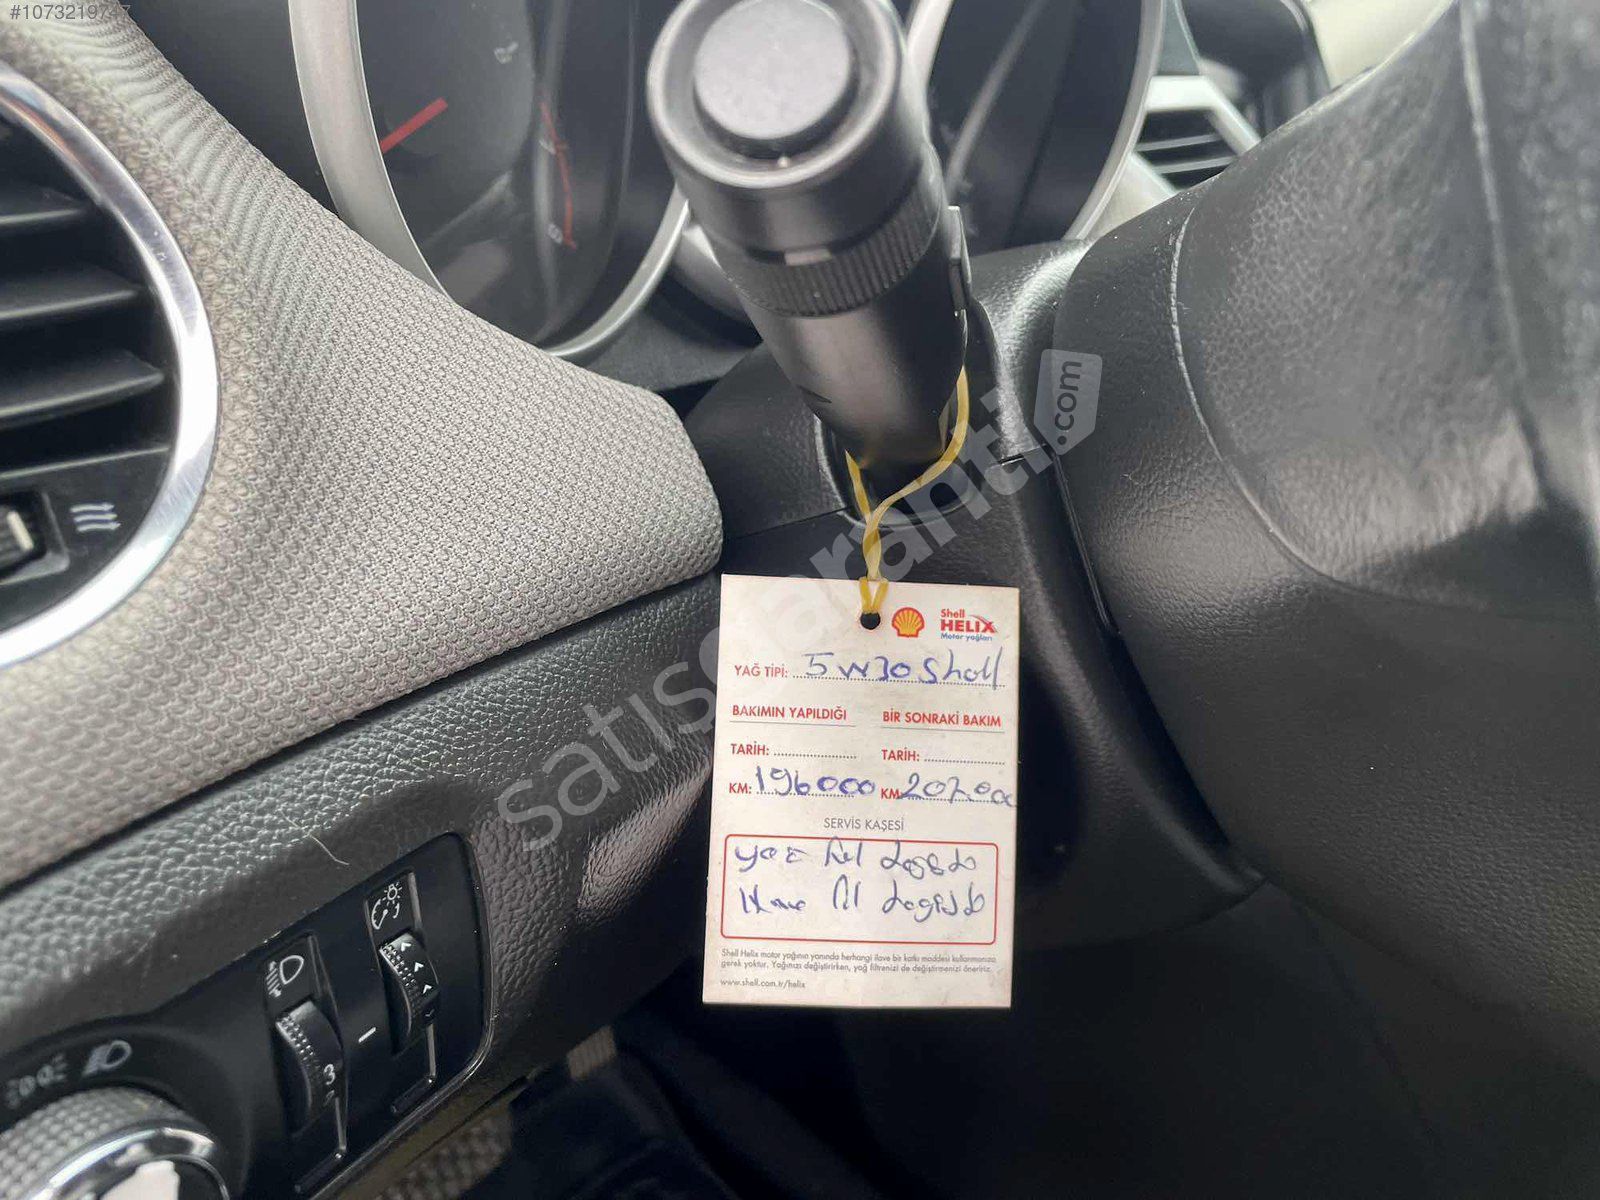 #1073219747
satisgaranti.com
Shell
HELIX
Motor yağları
YAĞ TİPİ: 5W30 Shell
BAKIMIN YAPILDIĞI BİR SONRAKİ BAKIM
TARİH: TARİH:
KM: 196000 KM:
SERVİS KAŞESİ
Shell Helix motor yağının yanında herhangi ilave bir katkı maddesi kullanmanıza
gerek yoktur. Yağınızı değiştirirken, yağ filtrenizi de değiştirmenizi öneririz.
www.shell.com.tr/helix
3